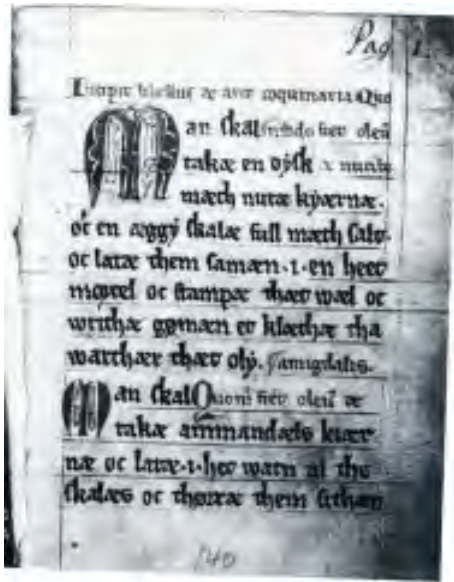 Pag 1.
Incipit libellus de arte coquinaria Quo
Man skal modo fiet oleū
takæ en dysk de
mæth nutæ kyærnæ.
oc en æggy skalæ full mæth salt.
oc latæ them samæn .i. en heet
mortel oc stampæ thær wæl oc
writhæ gømæn et klæthæ tha
warthær thær oly. amigdalis.
Man skal Quomō fiet oleū de
takæ ammandæls kiær
næ oc latæ .i. het watn al the
skalæs oc thorræ them sithæn
140